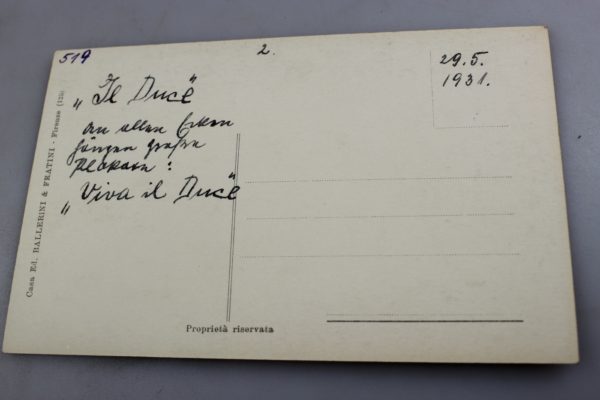 519
2.
29.5.
1931.
„Il Duce“
An allen Ecken
hängen große
Plakate :
„Viva il Duce“
Casa Ed. BALLERINI & FRATINI - Firenze
Proprietà riservata